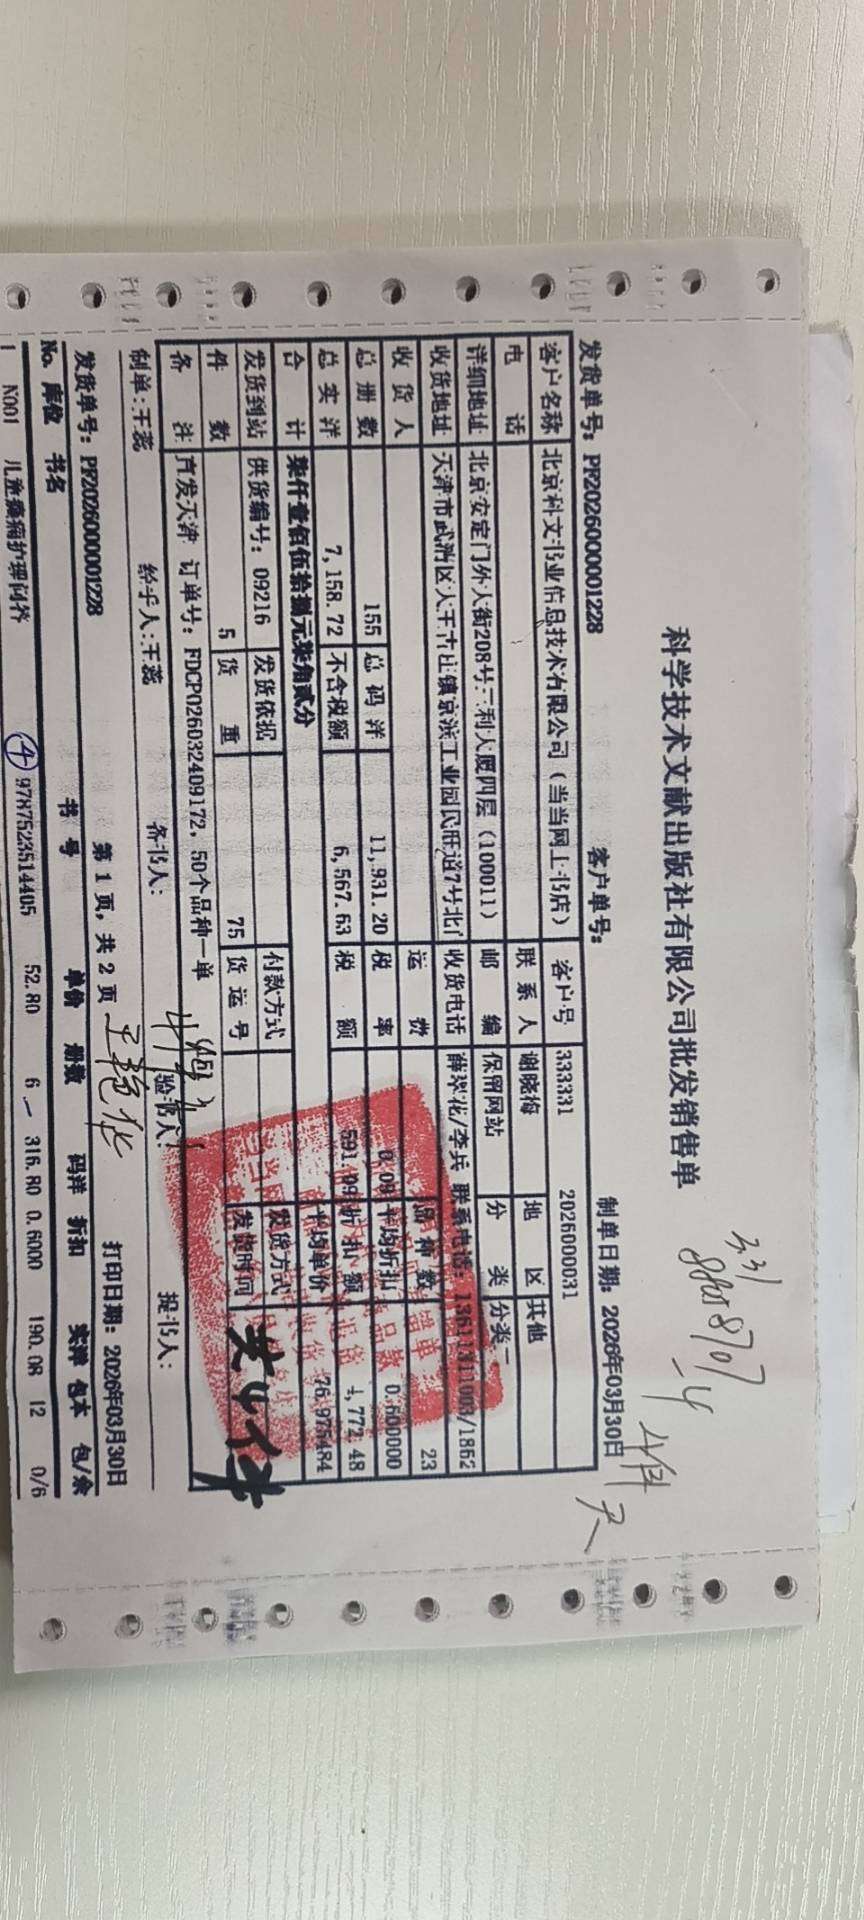 科学技术文献出版社有限公司批发销售单
331
发货单号: PF2026000001228 客户单号: 制单日期: 2026年03月30日
客户名称 北京科文书业信息技术有限公司（当当网上书店） 客户号 333331 2026000031
电 话 联系人 谢晓梅 地 区 其他
详细地址 北京安定门外大街208号三利大厦四层（100011） 邮 编 保留网站 分 类 分类一
收货地址 天津市武清区大王古庄镇京滨工业园民旺道7号北门 收货电话 薛翠花/李兵 联系电话: 13611311003/1862
收货人 运 费 品种数 23
总册数 155 总码洋 11,931.20 税 率 0.09 平均折扣 0.600000
总实洋 7,158.72 不含税额 6,567.63 税 额 591.09 折扣额 4,772.48
合 计 柒仟壹佰伍拾捌元柒角贰分 平均单价 76.975484
发货到站 供货编号: 09216 发货依据 付款方式 发货方式
件 数 5 货 重 75 货运号 发货时间
备 注 直发天津 订单号: FDCP026032409172, 50个品种一单
制单:王蕊 经手人:王蕊 备书人: 验书人: 提书人:
发货单号: PF2026000001228 第 1 页, 共 2 页 打印日期: 2026年03月30日
No. 库位 书名 书 号 单价 册数 码洋 折扣 实洋 包本 包/余
1 N001 儿童癫痫护理问答 ④ 9787523514405 52.80 6 316.80 0.6000 190.08 12 0/6